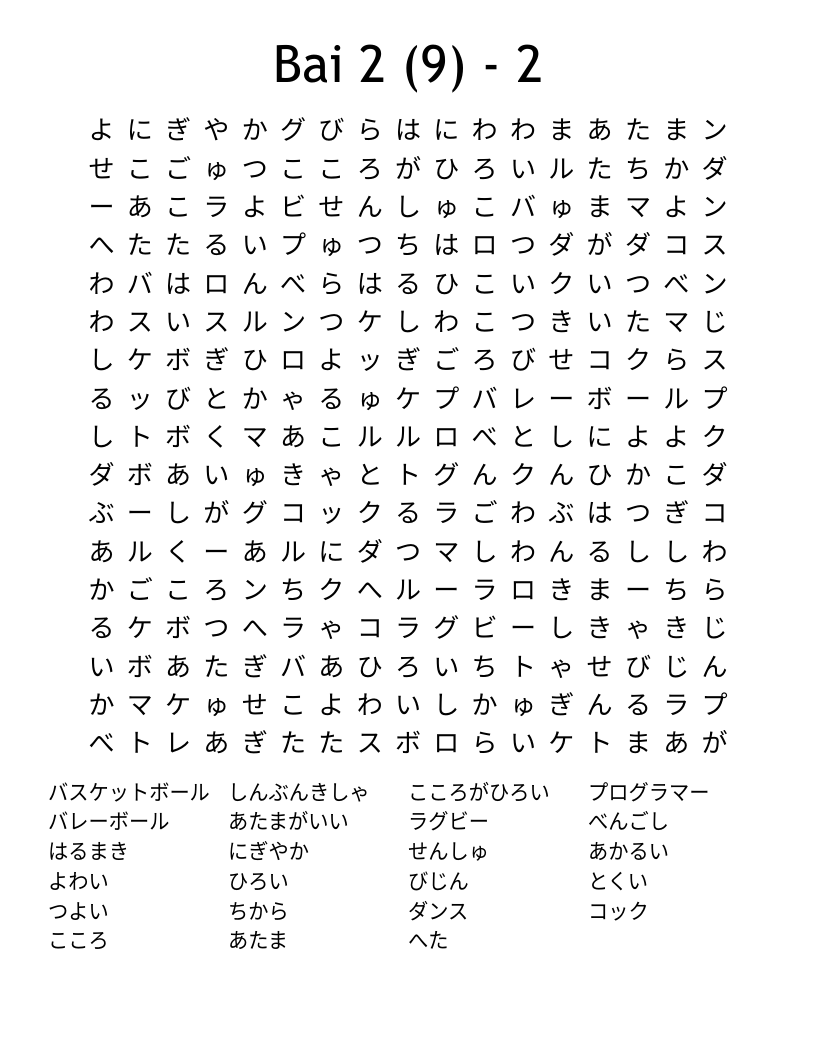 Bai 2 (9) - 2
よ に ぎ や か グ び ら は に わ わ ま あ た ま ン
せ こ ご ゅ つ こ こ ろ が ひ ろ い ル た ち か ダ
ー あ こ ラ よ ビ せ ん し ゅ こ バ ゅ ま マ よ ン
へ た た る い プ ゅ つ ち は ロ つ ダ が ダ コ ス
わ バ は ロ ん べ ら は る ひ こ い ク い つ べ ン
わ ス い ス ル ン つ ケ し わ こ つ き い た マ じ
し ケ ボ ぎ ひ ロ よ ッ ぎ ご ろ び せ コ ク ら ス
る ッ び と か ゃ る ゅ ケ プ バ レ ー ボ ー ル プ
し ト ボ く マ あ こ ル ル ロ べ と し に よ よ ク
ダ ボ あ い ゅ き ゃ と ト グ ん ク ん ひ か こ ダ
ぶ ー し が グ コ ッ ク る ラ ご わ ぶ は つ ぎ コ
あ ル く ー あ ル に ダ つ マ し わ ん る し し わ
か ご こ ろ ン ち ク へ ル ー ラ ロ き ま ー ち ら
る ケ ボ つ へ ラ ゃ コ ラ グ ビ ー し き ゃ き じ
い ボ あ た ぎ バ あ ひ ろ い ち ト ゃ せ び じ ん
か マ ケ ゅ せ こ よ わ い し か ゅ ぎ ん る ラ プ
べ ト レ あ ぎ た た ス ボ ロ ら い ケ ト ま あ が
バスケットボール しんぶんきしゃ こころがひろい プログラマー
バレーボール あたまがいい ラグビー べんごし
はるまき にぎやか せんしゅ あかるい
よわい ひろい びじん とくい
つよい ちから ダンス コック
こころ あたま へた